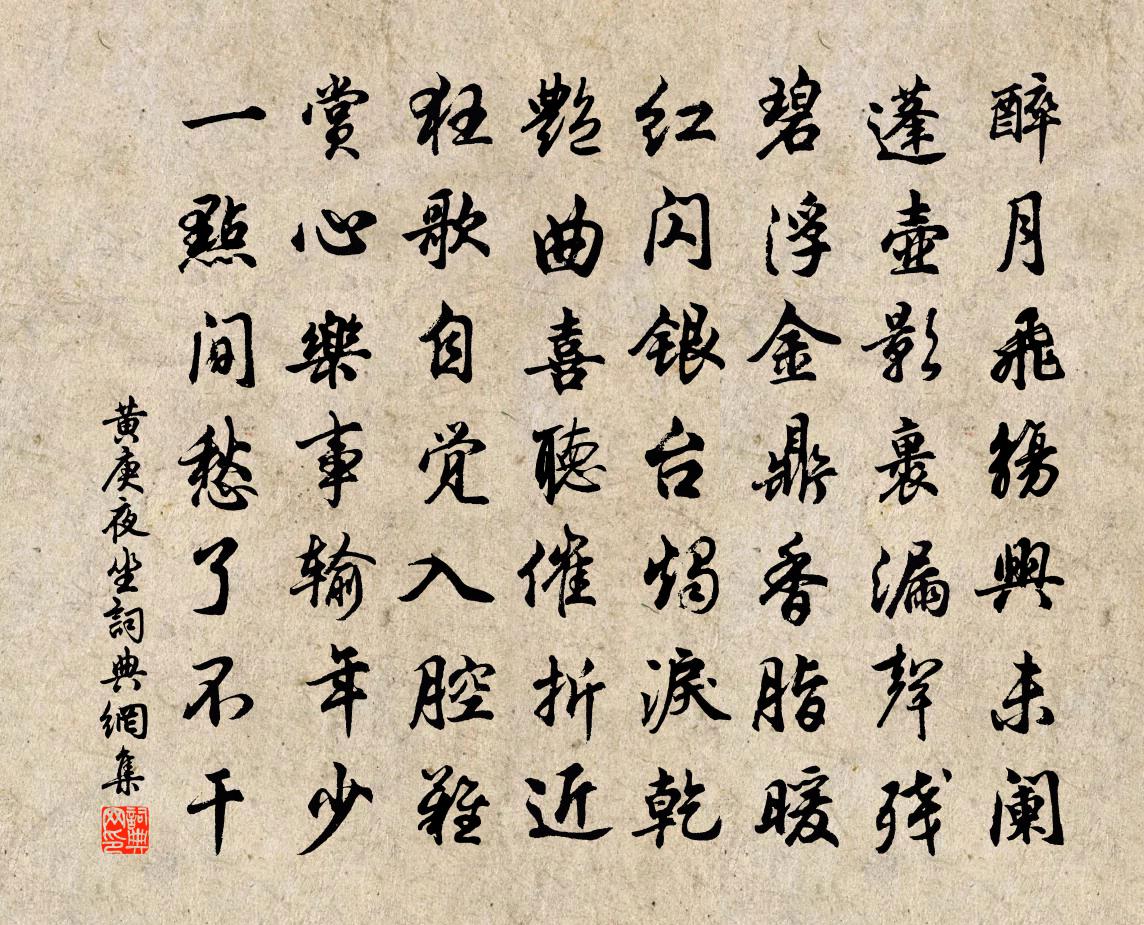 醉月飛觴興未阑
蓬壺影裹漏聲残
碧浮金鼎香脂暖
红闪銀台燭淚乾
艷曲喜聽催折近
狂歌自觉入腔難
賞心樂事输年少
一點閒愁了不干
黄庚夜坐詞典網集
詞典網印